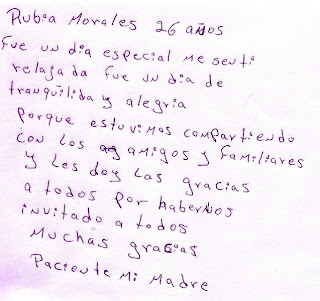 Rubia Morales 26 años
Fue un dia especial me senti
relajada fue un dia de
tranquilida y alegria
porque estuvimos compartiendo
con los amigos y familiares
y les doy las gracias
a todos por habernos
invitado a todos
Muchas gracias
Paciente Mi Madre